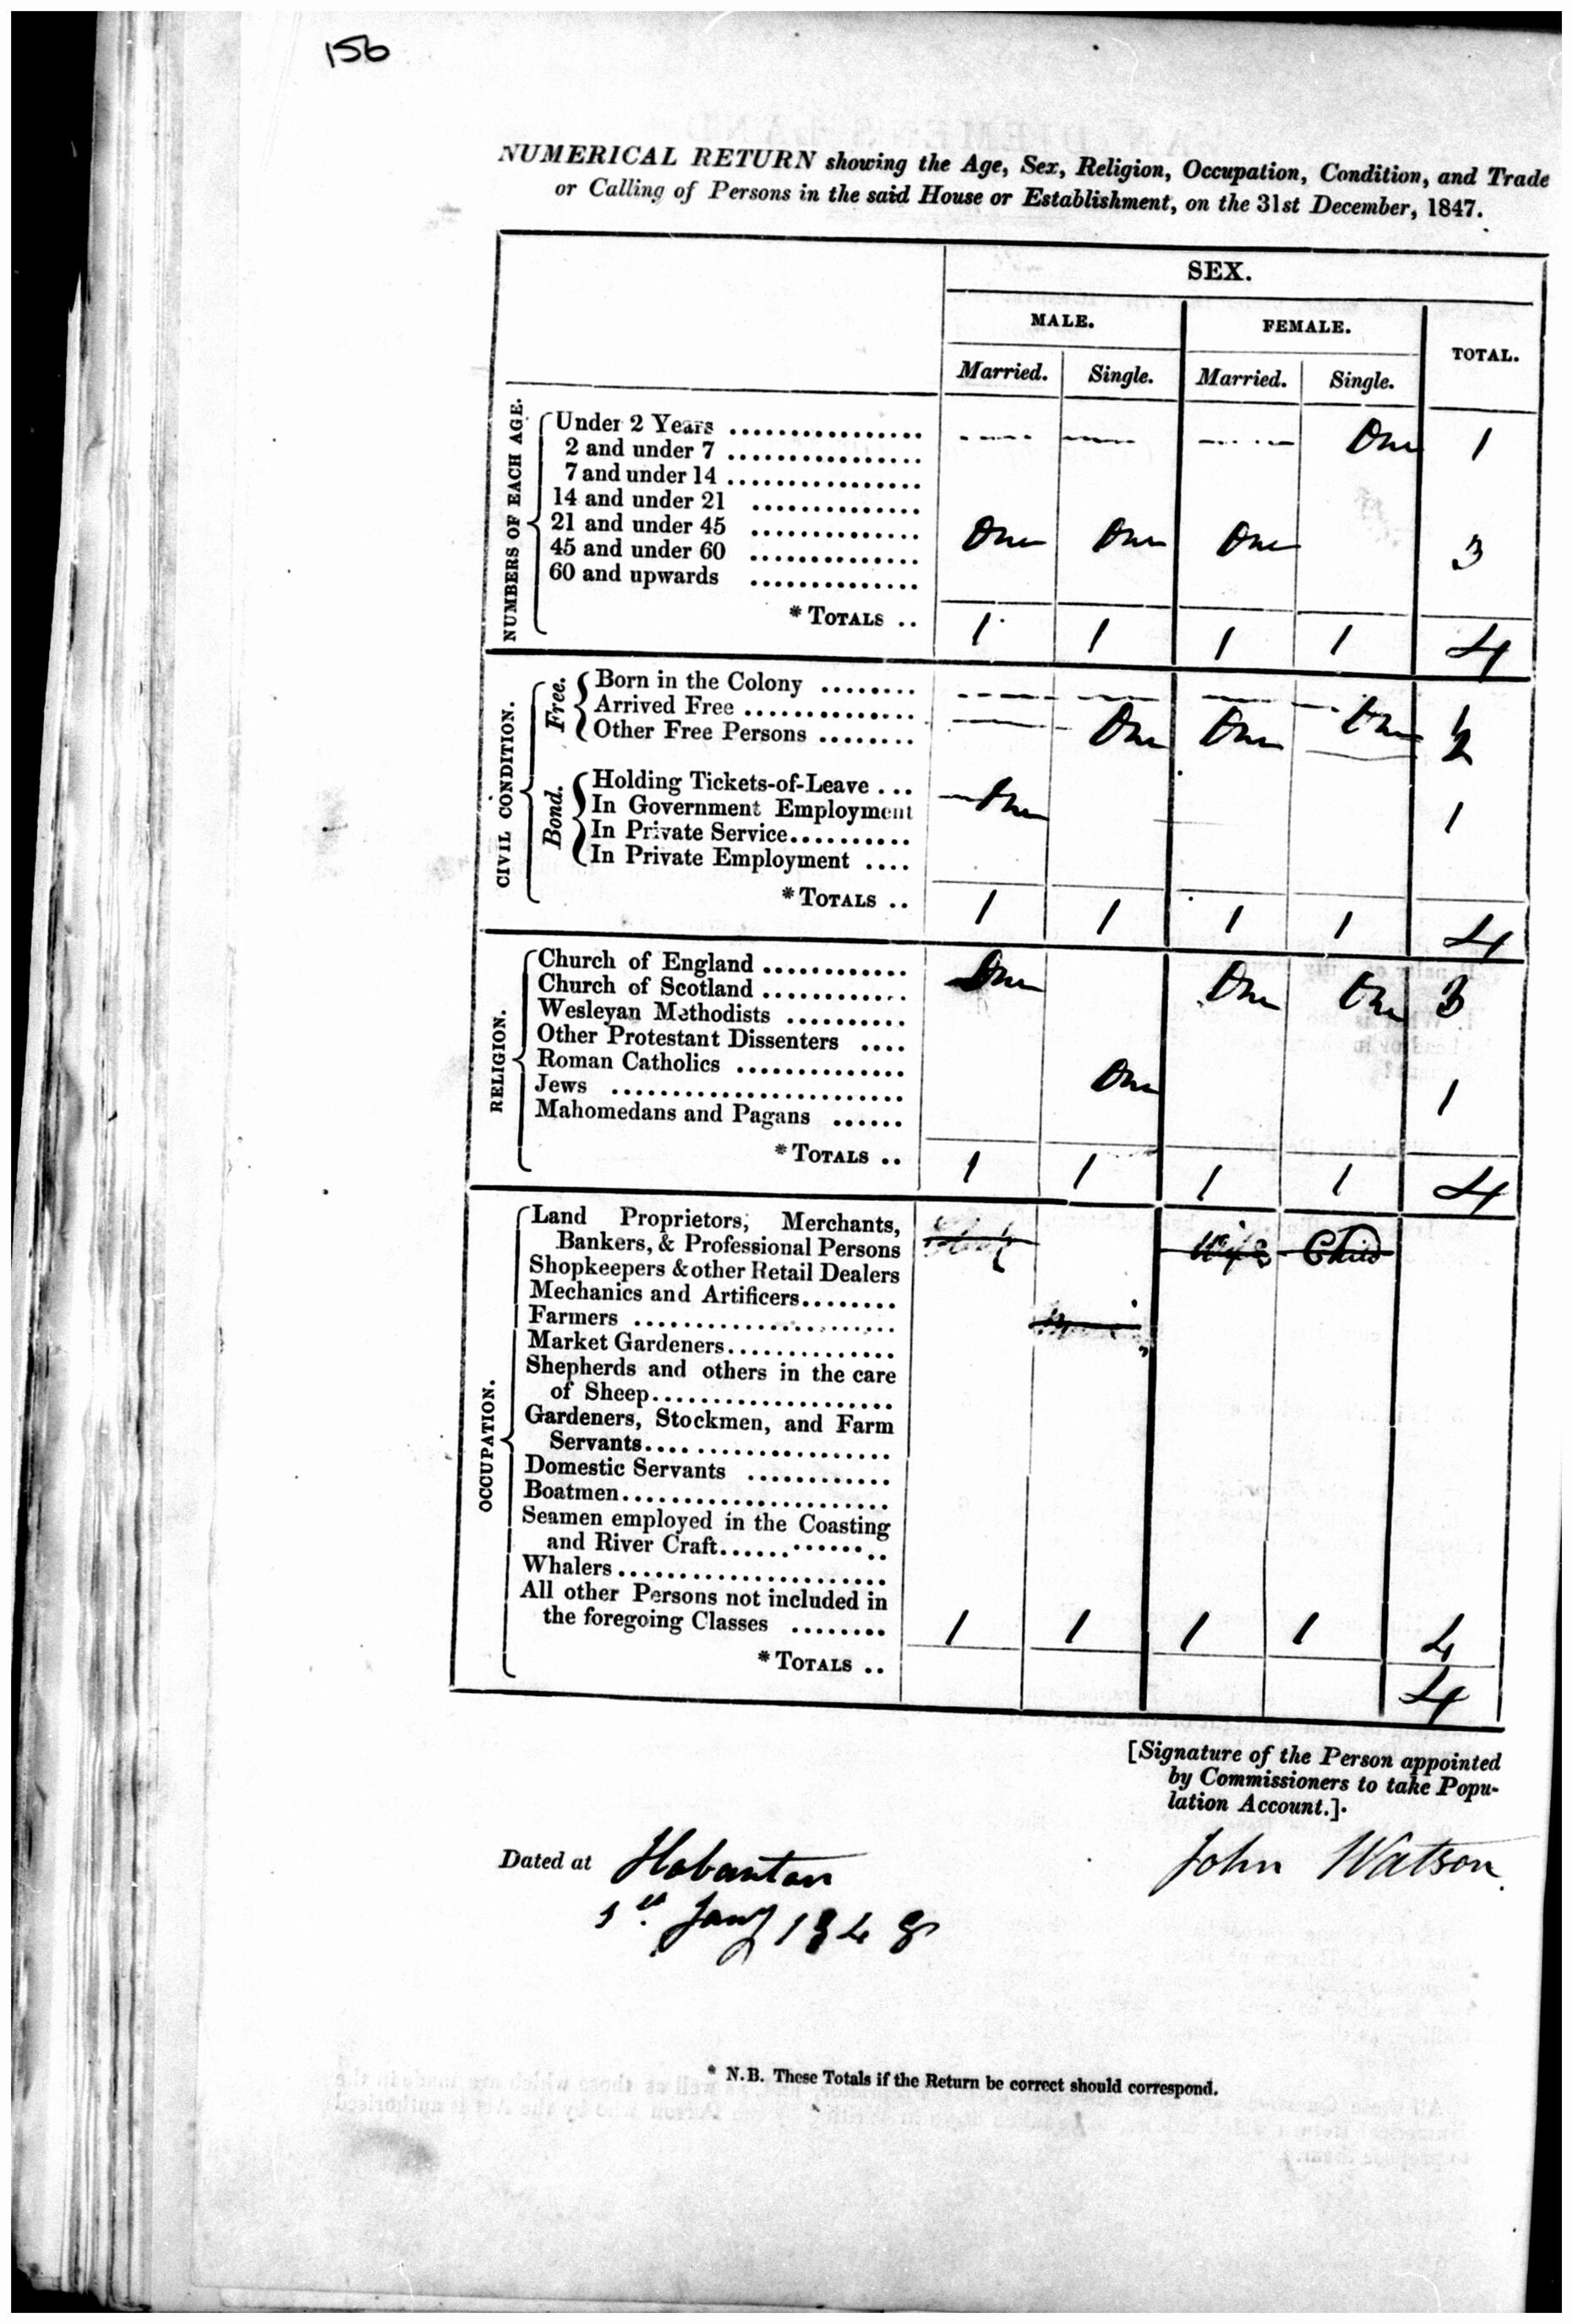 156
NUMERICAL RETURN showing the Age, Sex, Religion, Occupation, Condition, and Trade
or Calling of Persons in the said House or Establishment, on the 31st December, 1847.
SEX.
MALE. FEMALE. TOTAL.
Married. Single. Married. Single.
NUMBERS OF EACH AGE.
Under 2 Years ................ One 1
2 and under 7 ................
7 and under 14 ................
14 and under 21 ..............
21 and under 45 .............. One One One 3
45 and under 60 ..............
60 and upwards ..............
* TOTALS .. 1 1 1 1 4
CIVIL CONDITION.
Free.
Born in the Colony ........ One 1
Arrived Free ..............
Other Free Persons ........ One One 2
Bond.
Holding Tickets-of-Leave ... One 1
In Government Employment
In Private Service..........
In Private Employment ....
* TOTALS .. 1 1 1 1 4
RELIGION.
Church of England ............ One One One 3
Church of Scotland ............
Wesleyan Methodists ..........
Other Protestant Dissenters ....
Roman Catholics .............. One 1
Jews ........................
Mahomedans and Pagans ......
* TOTALS .. 1 1 1 1 4
OCCUPATION.
Land Proprietors, Merchants,
Bankers, & Professional Persons Wife Child
Shopkeepers & other Retail Dealers
Mechanics and Artificers........
Farmers ......................
Market Gardeners..............
Shepherds and others in the care
of Sheep....................
Gardeners, Stockmen, and Farm
Servants....................
Domestic Servants ............
Boatmen......................
Seamen employed in the Coasting
and River Craft..............
Whalers ......................
All other Persons not included in
the foregoing Classes ........ 1 1 1 1 4
* TOTALS .. 4
[Signature of the Person appointed
by Commissioners to take Popu-
lation Account.].
Dated at Hobarton John Watson
1st Jany 1848
* N.B. These Totals if the Return be correct should correspond.